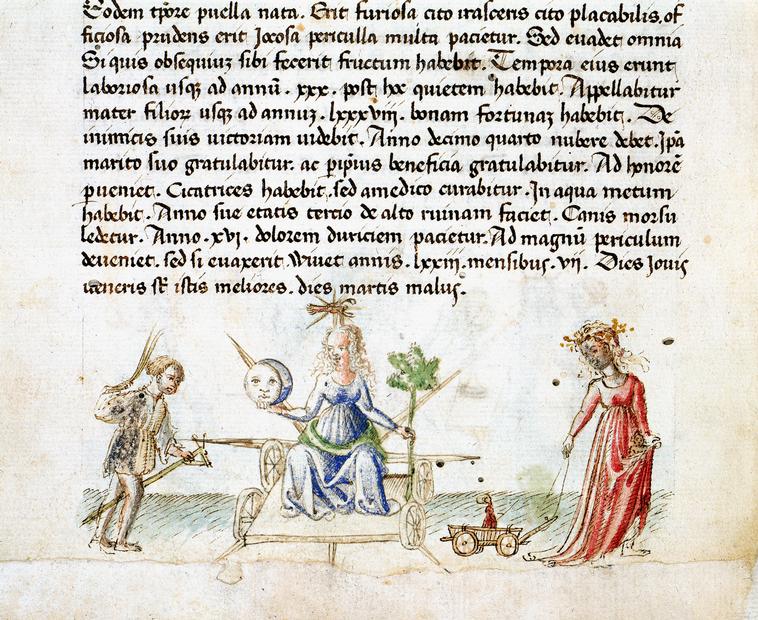 Eodem tp̄ore puella nata. Erit furiosa cito irascens cito placabilis. of
ficiosa prudens erit Jocosa periculla multa pacietur. Sed euadet omnia
Si quis obsequiuz sibi fecerit fructum habebit. Tempora eius erunt
laboriosa usq; ad annū. xxx. post hoc quietem habebit. Appellabitur
mater filior usq; ad annuz. lxxxviij. bonam fortunaz habebit. De
inimicis suis uictoriam uidebit. Anno decimo quarto nubere debet. Ip̄a
marito suo gratulabitur. ac pip̄ius beneficia gratulabitur. Ad honorē
pueniet. Cicatrices habebit. sed a medico curabitur. In aqua metum
habebit. Anno sue etatis tercio de alto ruinam faciet. Canis morsu
ledetur. Anno. xvi. dolorem duriciem pacietur. Ad magnū periculum
deueniet. sed si euaxerit Viuet annis. lxxiij. mensibus. vij. Dies Jouis
ueneris st̄ istis meliores. dies martis malus.